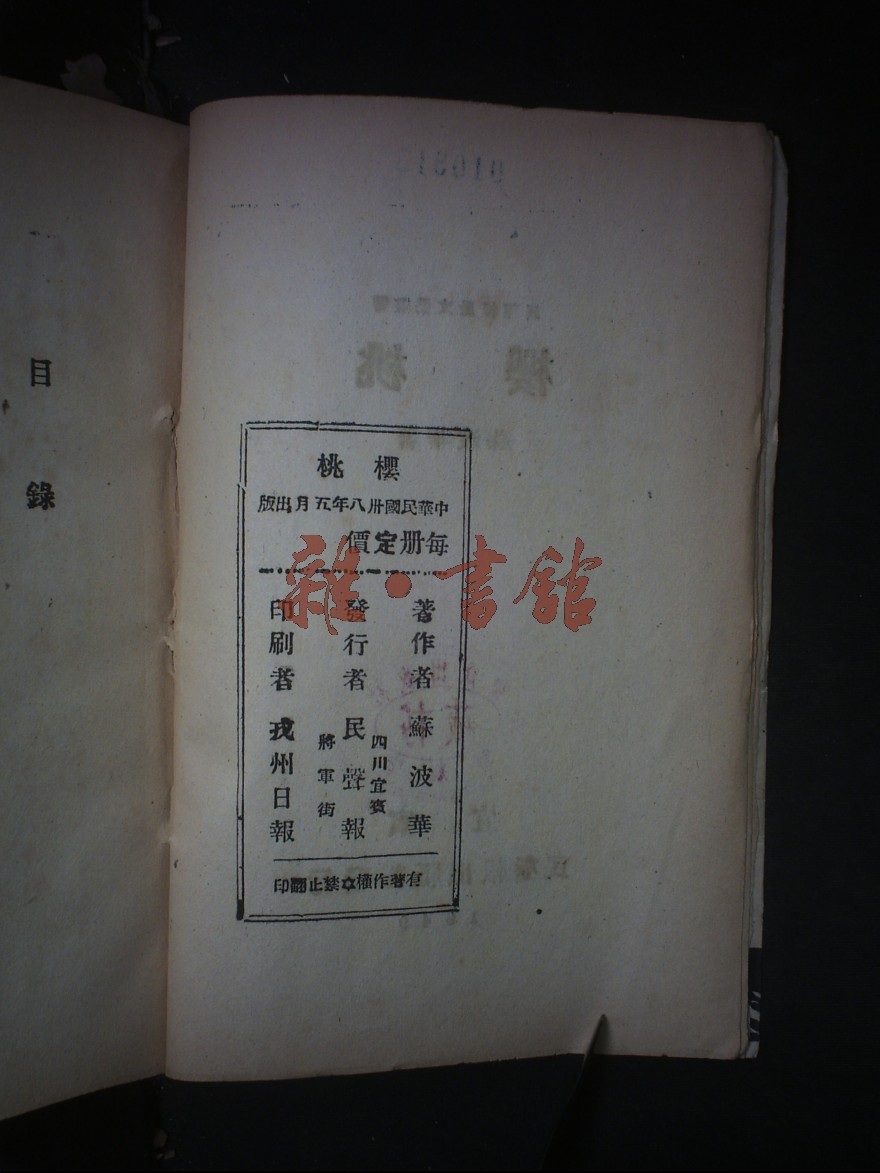 櫻桃
中華民國卅八年五月出版
每册定價
著作者 蘇波華
發行者 民聲報
四川宜賓
將軍街
印刷者 戎州日報
有著作權☆禁止翻印
目錄
雜·書館